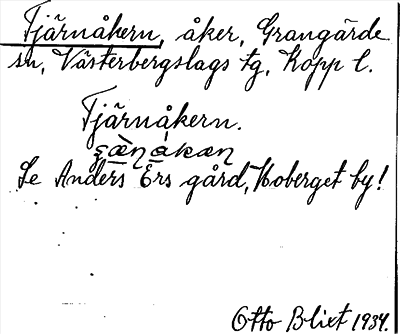 Tjärnåkern, åker, Grangärde
sn, Västerbergslags tg, Kopp l.
Tjärnåkern.
Se Anders Ers gård, Hoberget by!
Otto Blixt 1934.